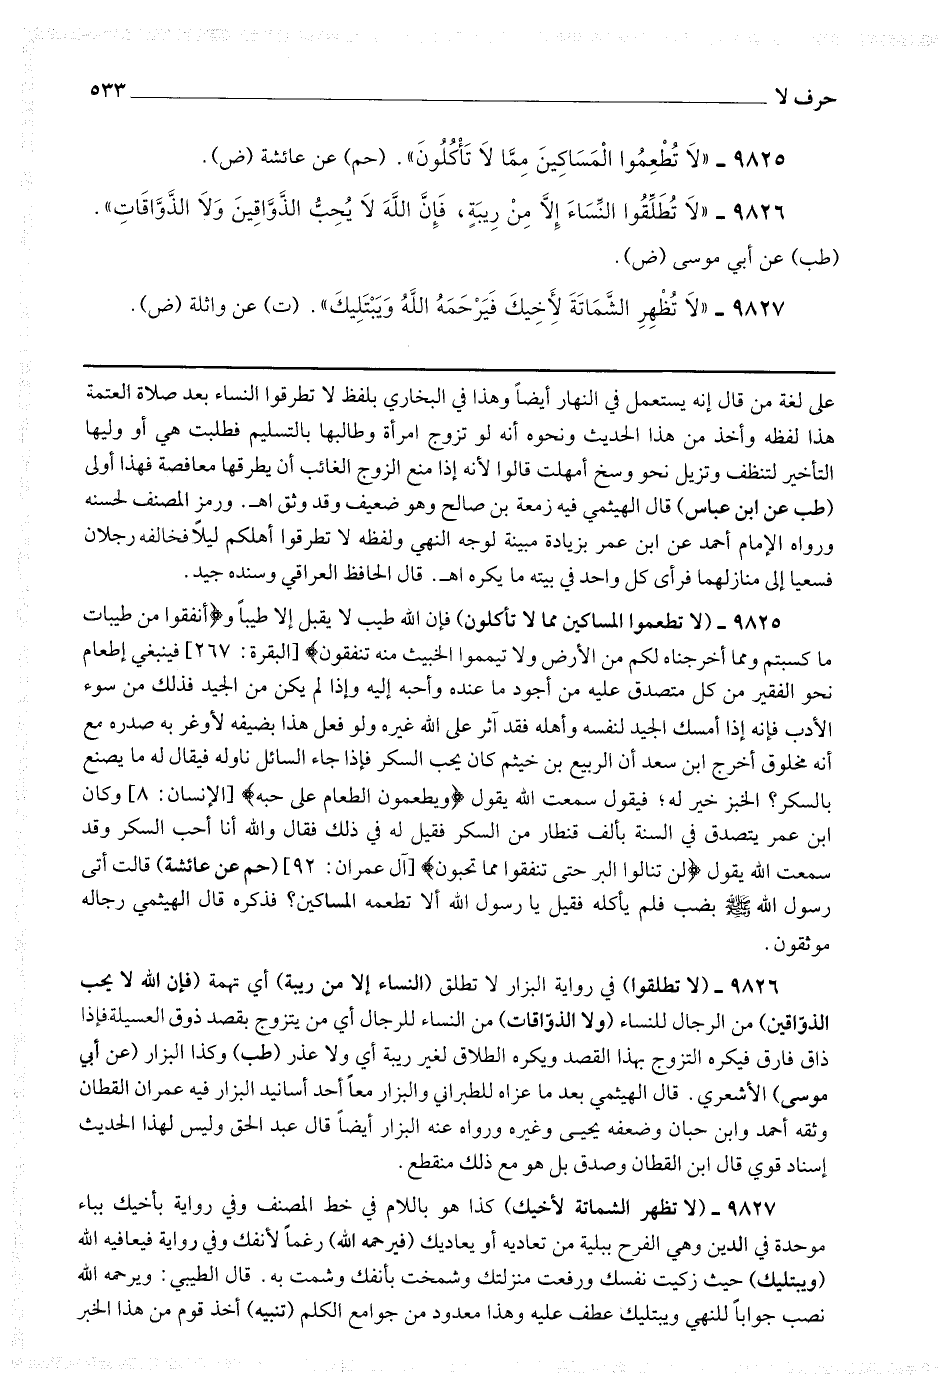 حرف لا ٥٣٣
٩٨٢٥ ـ «لَا تُطْعِمُوا الْمَسَاكِينَ مِمَّا لَا تَأْكُلُونَ». (حم) عن عائشة (ض).
٩٨٢٦ ـ «لَا تُطَلِّقُوا النِّسَاءَ إِلَّا مِنْ رِيبَةٍ، فَإِنَّ اللَّهَ لَا يُحِبُّ الذَّوَّاقِينَ وَلَا الذَّوَّاقَاتِ».
(طب) عن أبي موسى (ض).
٩٨٢٧ ـ «لَا تُظْهِرِ الشَّمَاتَةَ لِأَخِيكَ فَيَرْحَمَهُ اللَّهُ وَيَبْتَلِيكَ». (ت) عن واثلة (ض).
على لغة من قال إنه يستعمل في النهار أيضاً وهذا في البخاري بلفظ لا تطرقوا النساء بعد صلاة العتمة
هذا لفظه وأخذ من هذا الحديث ونحوه أنه لو تزوج امرأة وطالبها بالتسليم فطلبت هي أو وليها
التأخير لتنظف وتزيل نحو وسخ أمهلت قالوا لأنه إذا منع الزوج الغائب أن يطرقها معافصة فهذا أولى
(طب عن ابن عباس) قال الهيثمي فيه زمعة بن صالح وهو ضعيف وقد وثق اهـ. ورمز المصنف لحسنه
ورواه الإمام أحمد عن ابن عمر بزيادة مبينة لوجه النهي ولفظه لا تطرقوا أهلكم ليلاً فخالفه رجلان
فسعيا إلى منازلهما فرأى كل واحد في بيته ما يكره اهـ. قال الحافظ العراقي وسنده جيد.
٩٨٢٥ ـ (لا تطعموا المساكين مما لا تأكلون) فإن الله طيب لا يقبل إلا طيباً و﴿أنفقوا من طيبات
ما كسبتم ومما أخرجناه لكم من الأرض ولا تيمموا الخبيث منه تنفقون﴾ [البقرة: ٢٦٧] فينبغي إطعام
نحو الفقير من كل متصدق عليه من أجود ما عنده وأحبه إليه وإذا لم يكن من الجيد فذلك من سوء
الأدب فإنه إذا أمسك الجيد لنفسه وأهله فقد آثر على الله غيره ولو فعل هذا بضيفه لأوغر به صدره مع
أنه مخلوق أخرج ابن سعد أن الربيع بن خيثم كان يحب السكر فإذا جاء السائل ناوله فيقال له ما يصنع
بالسكر؟ الخبز خير له؛ فيقول سمعت الله يقول ﴿ويطعمون الطعام على حبه﴾ [الإنسان: ٨] وكان
ابن عمر يتصدق في السنة بألف قنطار من السكر فقيل له في ذلك فقال والله أنا أحب السكر وقد
سمعت الله يقول ﴿لن تنالوا البر حتى تنفقوا مما تحبون﴾ [آل عمران: ٩٢] (حم عن عائشة) قالت أتى
رسول الله ﷺ بضب فلم يأكله فقيل يا رسول الله ألا تطعمه المساكين؟ فذكره قال الهيثمي رجاله
موثقون.
٩٨٢٦ ـ (لا تطلقوا) في رواية البزار لا تطلق (النساء إلا من ريبة) أي تهمة (فإن الله لا يحب
الذوّاقين) من الرجال للنساء (ولا الذوّاقات) من النساء للرجال أي من يتزوج بقصد ذوق العسيلة فإذا
ذاق فارق فيكره التزوج بهذا القصد ويكره الطلاق لغير ريبة أي ولا عذر (طب) وكذا البزار (عن أبي
موسى) الأشعري. قال الهيثمي بعد ما عزاه للطبراني والبزار معاً أحد أسانيد البزار فيه عمران القطان
وثقه أحمد وابن حبان وضعفه يحيى وغيره ورواه عنه البزار أيضاً قال عبد الحق وليس لهذا الحديث
إسناد قوي قال ابن القطان وصدق بل هو مع ذلك منقطع.
٩٨٢٧ ـ (لا تظهر الشماتة لأخيك) كذا هو باللام في خط المصنف وفي رواية بأخيك بباء
موحدة في الدين وهي الفرح ببلية من تعاديه أو يعاديك (فيرحمه الله) رغماً لأنفك وفي رواية فيعافيه الله
(ويبتليك) حيث زكيت نفسك ورفعت منزلتك وشمخت بأنفك وشمت به. قال الطيبي: ويرحمه الله
نصب جواباً للنهي ويبتليك عطف عليه وهذا معدود من جوامع الكلم (تنبيه) أخذ قوم من هذا الخبر